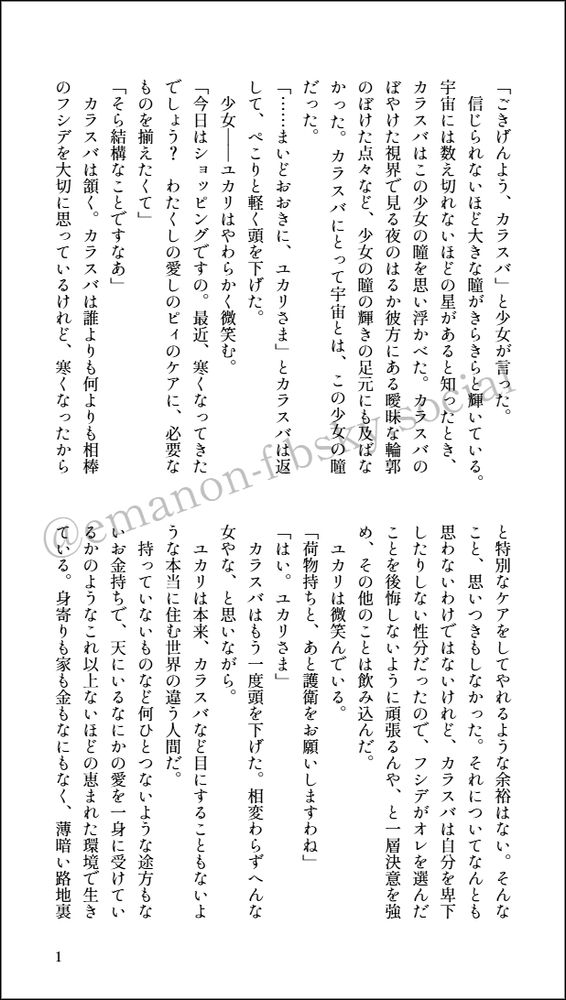 「ごきげんよう、カラスバ」と少女が言った。
　信じられないほど大きな瞳がきらきらと輝いている。
宇宙には数え切れないほどの星があると知ったとき、
カラスバはこの少女の瞳を思い浮かべた。カラスバの
ぼやけた視界で見る夜のはるか彼方にある曖昧な輪郭
のぼけた点々など、少女の瞳の輝きの足元にも及ばな
かった。カラスバにとって宇宙とは、この少女の瞳
だった。
「……まいどおおきに、ユカリさま」とカラスバは返
して、ぺこりと軽く頭を下げた。
　少女――ユカリはやわらかく微笑む。
「今日はショッピングですの。最近、寒くなってきた
でしょう？　わたくしの愛しのピィのケアに、必要な
ものを揃えたくて」
「そら結構なことですなあ」
　カラスバは頷く。カラスバは誰よりも何よりも相棒
のフシデを大切に思っているけれど、寒くなったから
と特別なケアをしてやれるような余裕はない。そんな
こと、思いつきもしなかった。それについてなんとも
思わないわけではないけれど、カラスバは自分を卑下
したりしない性分だったので、フシデがオレを選んだ
ことを後悔しないように頑張るんや、と一層決意を強
め、その他のことは飲み込んだ。
　ユカリは微笑んでいる。
「荷物持ちと、あと護衛をお願いしますわね」
「はい。ユカリさま」
　カラスバはもう一度頭を下げた。相変わらずへんな
女やな、と思いながら。
　ユカリは本来、カラスバなど目にすることもないよ
うな本当に住む世界の違う人間だ。
　持っていないものなど何ひとつないような途方もな
いお金持ちで、天にいるなにかの愛を一身に受けてい
るかのようなこれ以上ないほどの恵まれた環境で生き
ている。身寄りも家も金もなにもなく、薄暗い路地裏
1
@emanon-f.bsky.social